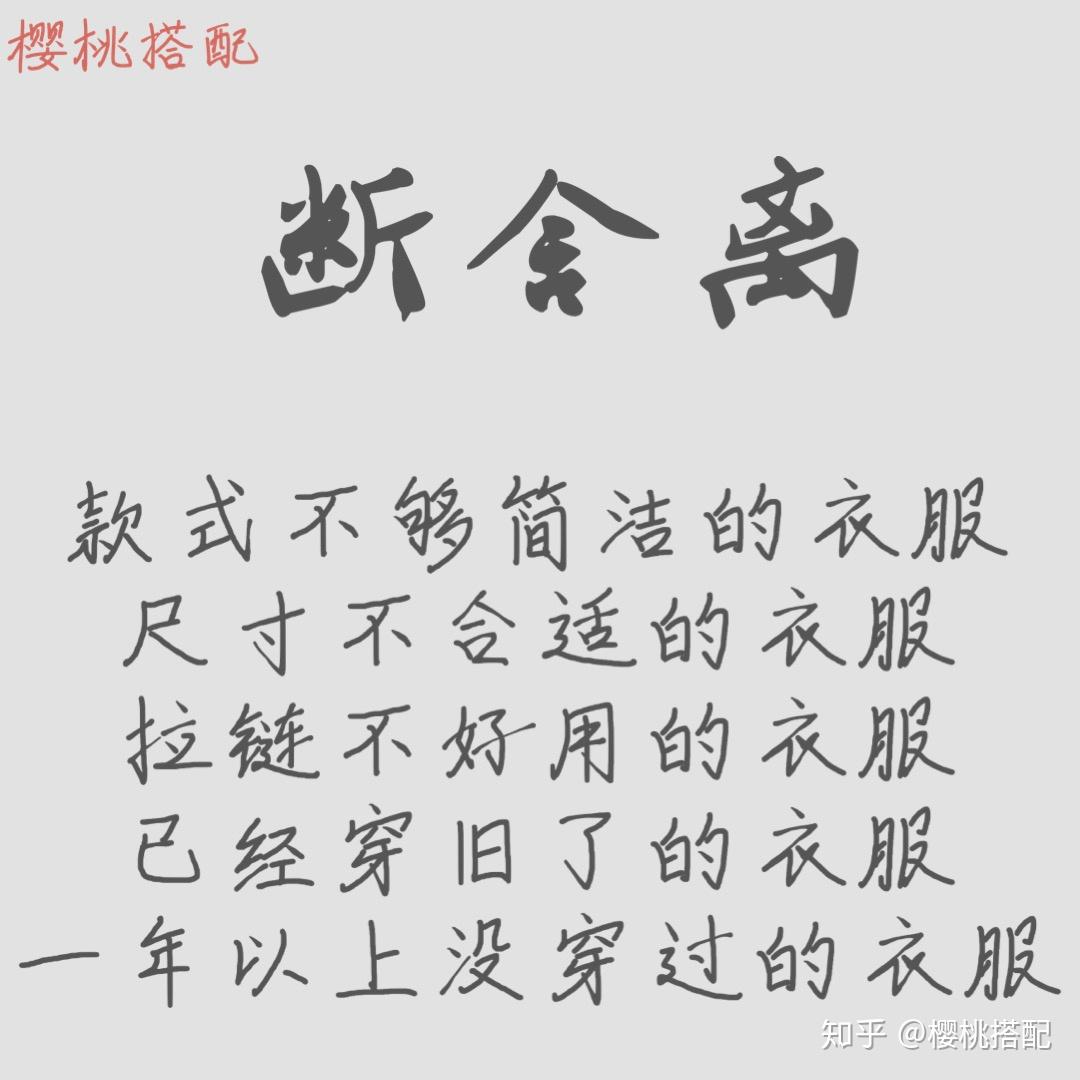 樱桃搭配
断舍离
款式不够简洁的衣服
尺寸不合适的衣服
拉链不好用的衣服
已经穿旧了的衣服
一年以上没穿过的衣服
知乎 @樱桃搭配